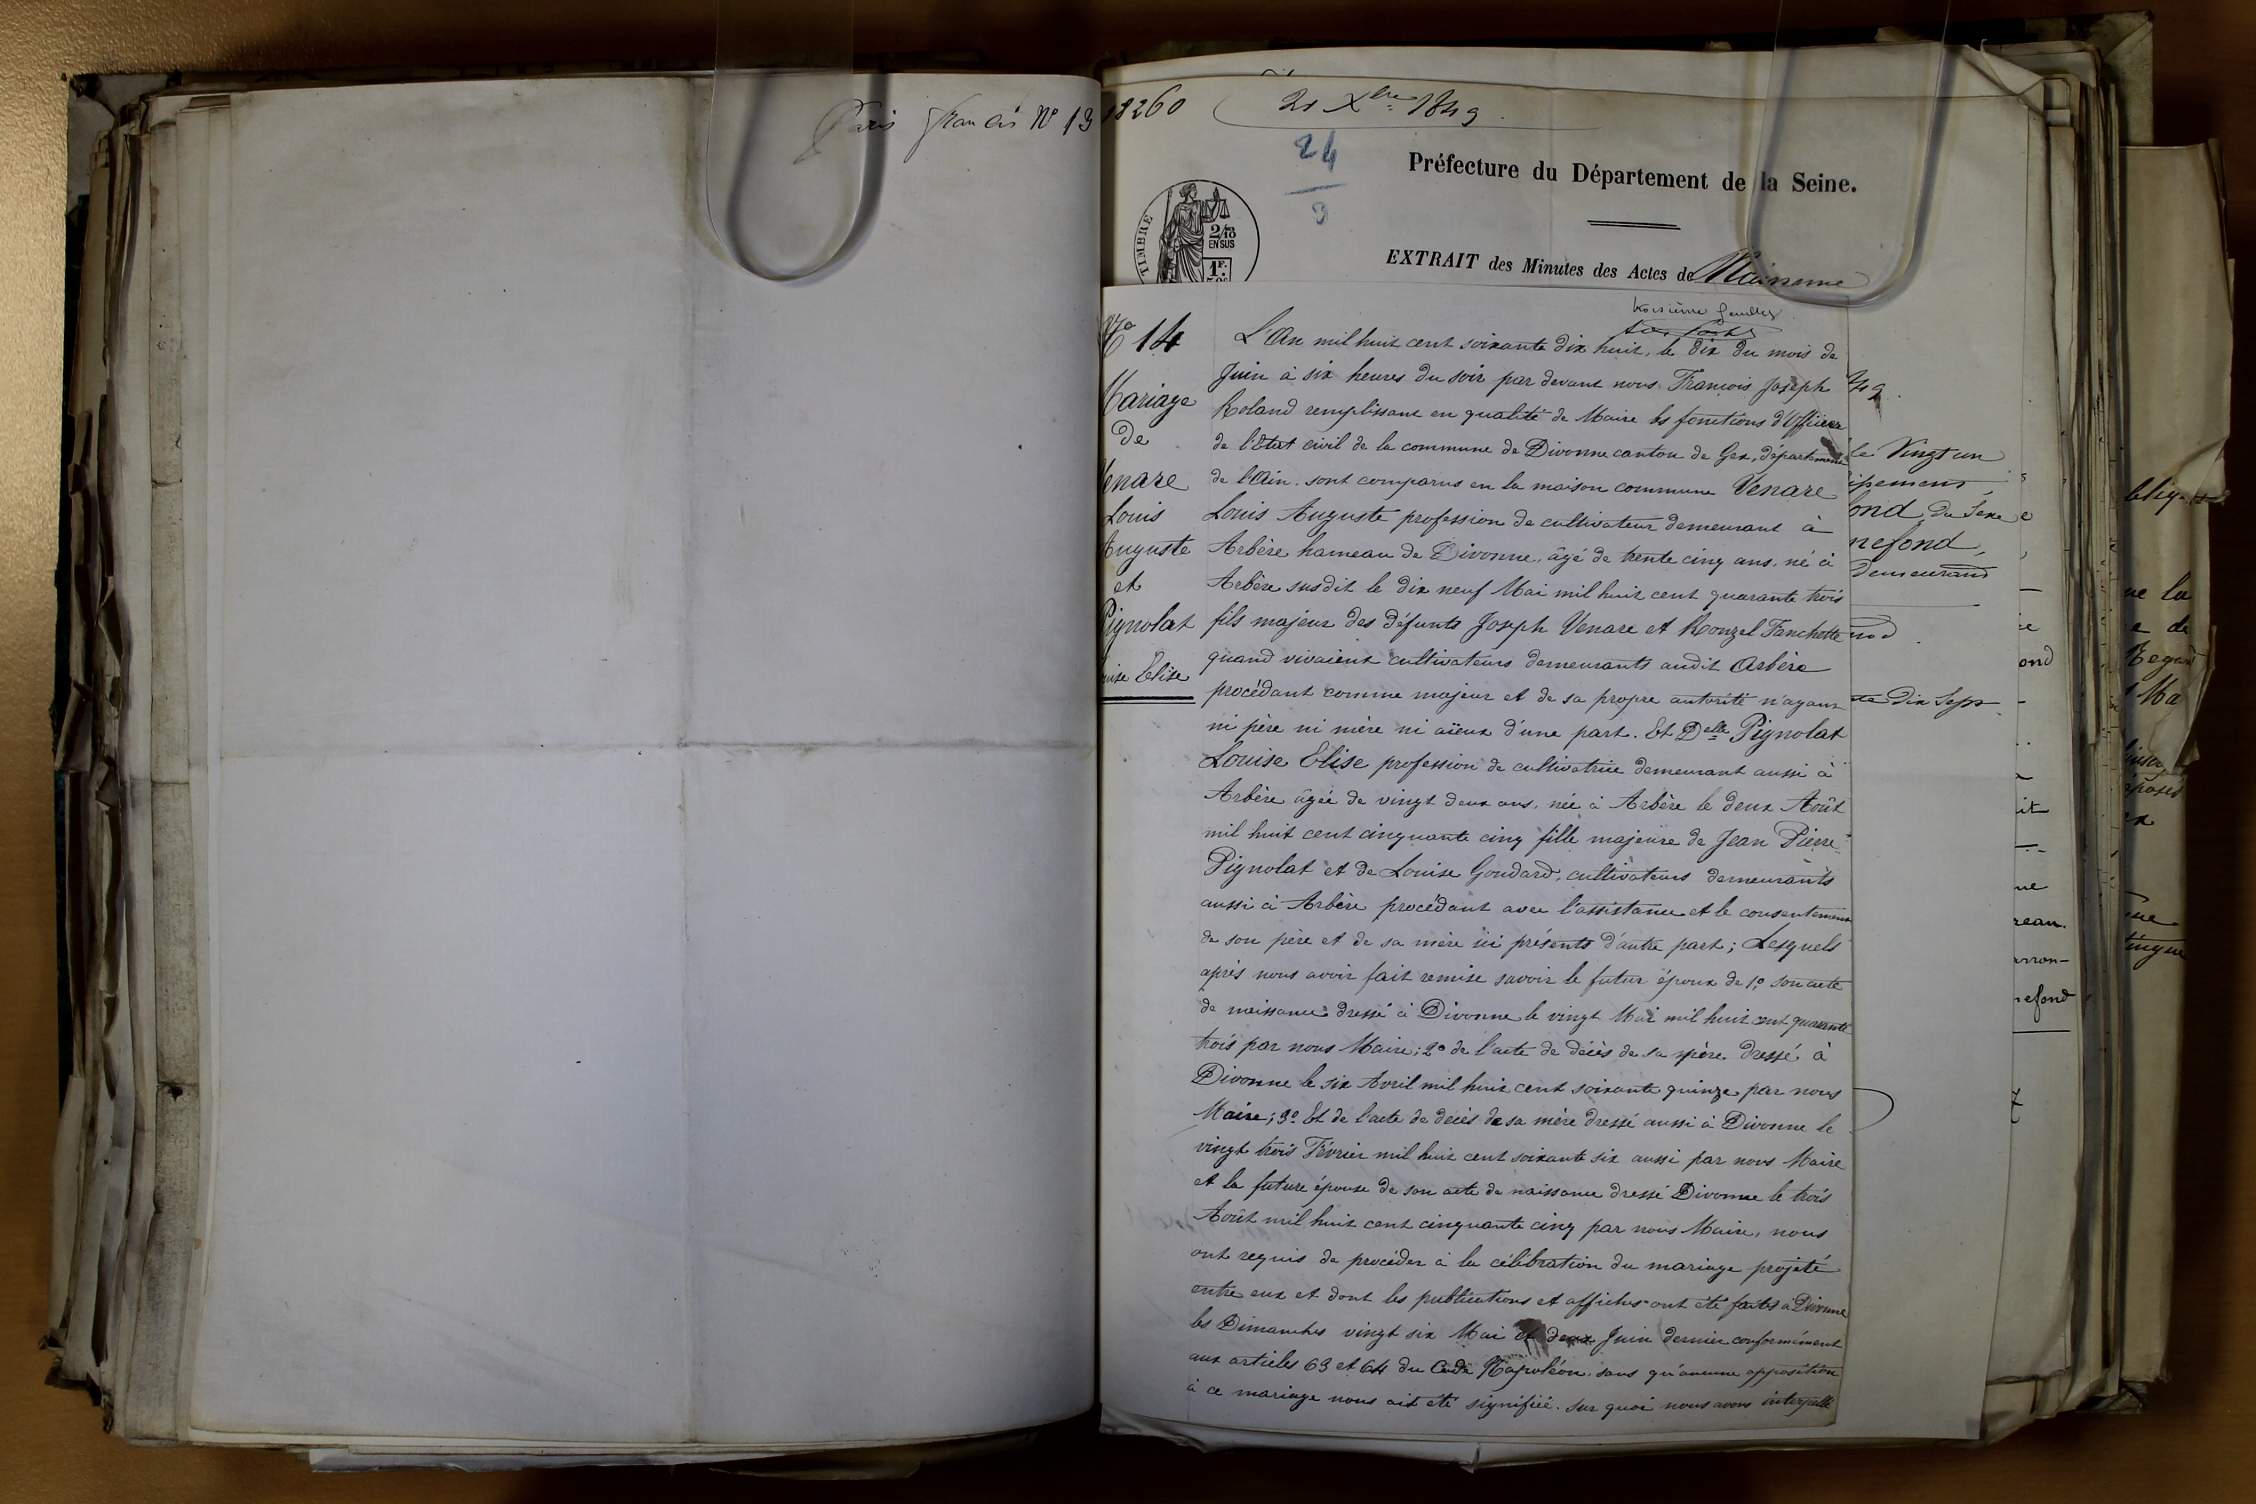 Paris francis Nº 13
18260
21 Xbre 1849
24
9
Préfecture du Département de la Seine.
TIMBRE
2/10
EN SUS
1F.
EXTRAIT des Minutes des Actes de Naissance
troisième feuillet
Nº 14
Mariage
de
Venare
Louis
Auguste
et
Pignolat
Louise Elise
L'An mil huit cent soixante dix huit, le dix du mois de
Juin à six heures du soir par devant nous François Joseph
Roland remplissant en qualité de Maire les fonctions d'Officier
de l'Etat civil de la commune de Divonne canton de Gex, département
de l'Ain. sont comparus en la maison commune Venare
Louis Auguste profession de cultivateur demeurant à
Arbère hameau de Divonne, âgé de trente cinq ans, né à
Arbère susdit le dix neuf Mai mil huit cent quarante trois
fils majeur des défunts Joseph Venare et Ronzel Fanchette
quand vivaient cultivateurs demeurants audit Arbère
procédant comme majeur et de sa propre autorité n'ayant
ni père ni mère ni aïeux d'une part. Et Delle Pignolat
Louise Elise profession de cultivatrice demeurant aussi à
Arbère âgée de vingt deux ans, née à Arbère le deux Août
mil huit cent cinquante cinq fille majeure de Jean Pierre
Pignolat et de Louise Goudard, cultivateurs demeurants
aussi à Arbère procédant avec l'assistance et le consentement
de son père et de sa mère ici présents d'autre part; Lesquels
après nous avoir fait remise savoir le futur époux de 1º son acte
de naissance dressé à Divonne le vingt Mai mil huit cent quarante
trois par nous Maire; 2º de l'acte de décès de sa père dressé à
Divonne le six Avril mil huit cent soixante quinze par nous
Maire; 3º Et de l'acte de décès de sa mère dressé aussi à Divonne le
vingt trois Février mil huit cent soixante six aussi par nous Maire
et la future épouse de son acte de naissance dressé Divonne le trois
Août mil huit cent cinquante cinq par nous Maire, nous
ont requis de procéder à la célébration du mariage projeté
entre eux et dont les publications et affiches ont été faites à Divonne
les Dimanches vingt six Mai et deux Juin dernier conformément
aux articles 63 et 64 du Code Napoléon, sans qu'aucune opposition
à ce mariage nous ait été signifiée. sur quoi nous avons interpellé
49.
le Vingt un
ond, du Sexe
nefond,
demeurant
te dix Sept
ond
it
ne
reau.
arron-
nefond
ne la
e de
Ma